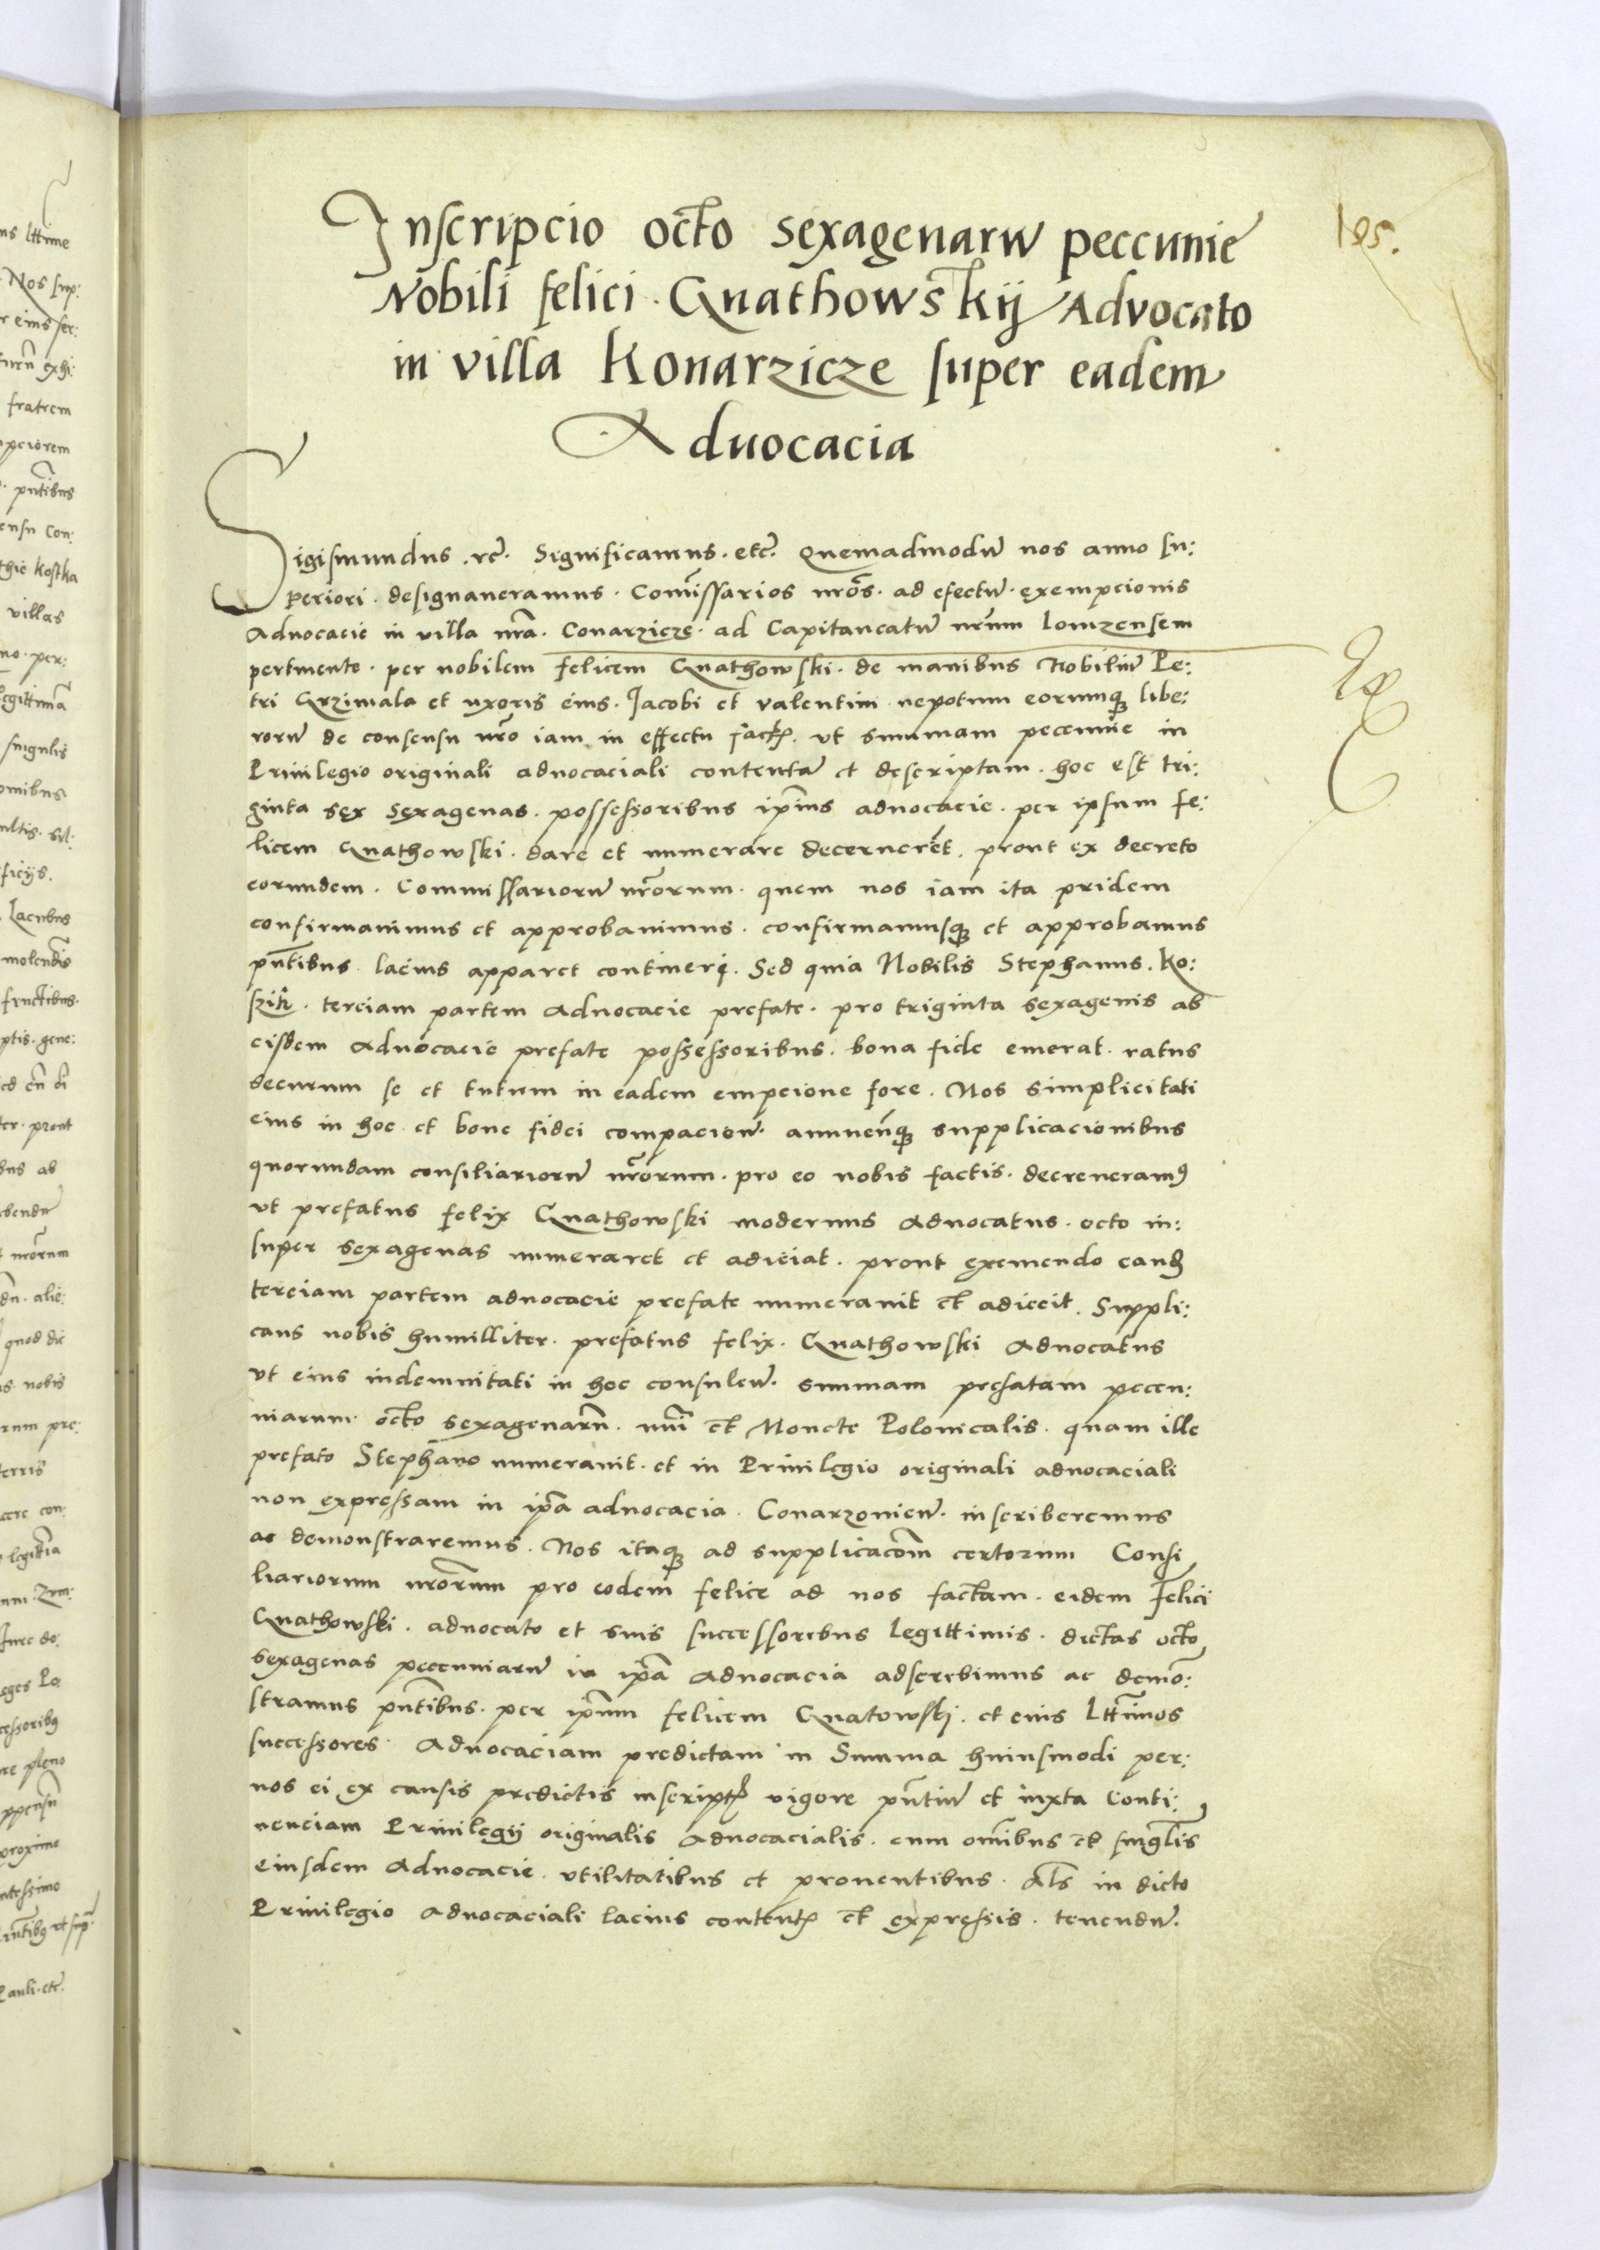 195.
Inscripcio octo sexagenarũ peccunie
Nobili felici Gnathowskij Advocato
in villa Konarzicze super eadem
Aduocacia
Sigismundus .rc̃. Significamus. etc̃. Quemadmodũ nos anno su:
periori. designaueramus. Com̃issarios nr̃os. ad efectũ. exempcionis
Aduocacie in villa nr̃a. Conarzicze. ad Capitaneatũ nr̃um lomzensem
pertinente. per nobilem felicem Gnathowski. de manibus Nobiliũ Pe:
tri Grzimala et uxoris eius. Jacobi et valentini nepotum eorumq̃ libe:
rorũ de consensu nr̃o iam in effectu fact. vt summam peccunie in
Priuilegio originali aduocaciali contentã et descriptam. hoc est tri:
ginta sex sexagenas. possessoribus ip̃ius aduocacie. per ipsum fe:
licem Gnathowski. dare et numerare decerneret. prout ex decreto
eorundem. Commissariorũ nr̃orum. quem nos iam ita pridem
confirmauimus et approbauimus. confirmamusq̃ et approbamus
pñtibus. lacius apparet contineri. Sed quia Nobilis Stephanus. Ko:
terciam partem Aduocacie prefate. pro triginta sexagenis ab
eisdem Aduocacie prefate possessoribus. bona fide emerat. ratus
securum se et tutum in eadem empcione fore. Nos simplicitati
eius in hoc et bone fidei compacien̄. annuenq̃ supplicacionibus
quorundam consiliariorũ nr̃orum. pro eo nobis factis. decreueramꝰ
vt prefatus felix Gnathowski modernus Aduocatus. octo in:
super sexagenas numeraret et adiciat. prout exemendo eand
terciam partem aduocacie prefate numerauit et adiecit. Suppli:
cans nobis humilliter. prefatus felix. Gnathowski Aduocatus
vt eius indemnitati in hoc consulen̄. summam prefatam peccu:
niarum octo sexagenarũ. nũi et Monete Polonicalis. quam ille
prefato Stephano numerauit. et in Priuilegio originali aduocaciali
non expressam in ip̃a aduocacia. Conarzonien̄. inscriberemus
ac demonstraremus. Nos itaq̃ ad supplicacõm certorum Consi
liariorum nr̃orum pro eodem felice ad nos factam. eidem felici
Gnathowski. aduocato et suis successoribus legittimis. dictas octo
sexagenas peccuniarũ in ip̃a Aduocacia adscribimus ac demõ:
stramus pñtibus. per ip̃um felicem Gnatowski. et eius lttĩmos
successores. Aduocaciam predictam in Summa huiusmodi per:
nos ei ex causis predictis inscript vigore pñtiũ et iuxta Conti:
nenciam Priuilegij originalis Aduocacialis. cum omĩbus et singlĩs
eiusdem Aduocacie. vtilitatibus et prouentibus. Als in dicto
Priuilegio Aduocaciali lacius content et expressis. tenendũ.